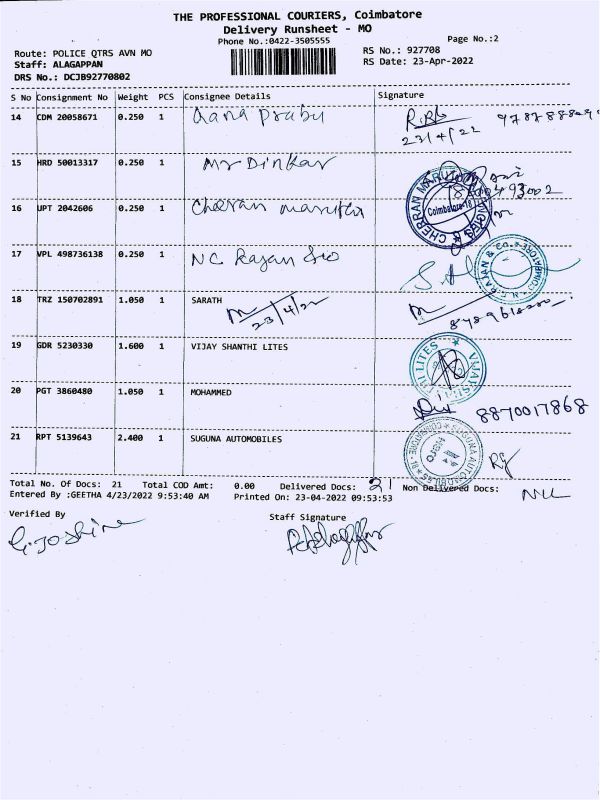 THE PROFESSIONAL COURIERS, Coimbatore
Delivery Runsheet - MO
Phone No.:0422-3505555
Page No.:2
Route: POLICE QTRS AVN MO
RS No.: 927708
Staff: ALAGAPPAN
RS Date: 23-Apr-2022
DRS No.: DCJB92770802
S No Consignment No Weight PCS Consignee Details Signature
14 CDM 20058671 0.250 1 Gana Prabu
23/4/22
15 HRD 50013317 0.250 1 Mr Dinkar
16 JPT 2042606 0.250 1 Cheran marutha
CHERRAN MARUTHI
Coimbatore-18
17 VPL 498736138 0.250 1 N C Rajan &co
N.C. RAJAN & Co. COIMBATORE
18 TRZ 150702891 1.050 1 SARATH
23/4/22
19 GDR 5230330 1.600 1 VIJAY SHANTHI LITES
20 PGT 3860480 1.050 1 MOHAMMED
8870017868
21 RPT 5139643 2.400 1 SUGUNA AUTOMOBILES
SUGUNA AUTOMOBILES
Total No. Of Docs: 21 Total COD Amt: 0.00 Delivered Docs: 21 Non Delivered Docs: NIL
Entered By :GEETHA 4/23/2022 9:53:40 AM Printed On: 23-04-2022 09:53:53
Verified By Staff Signature
G.Joshine